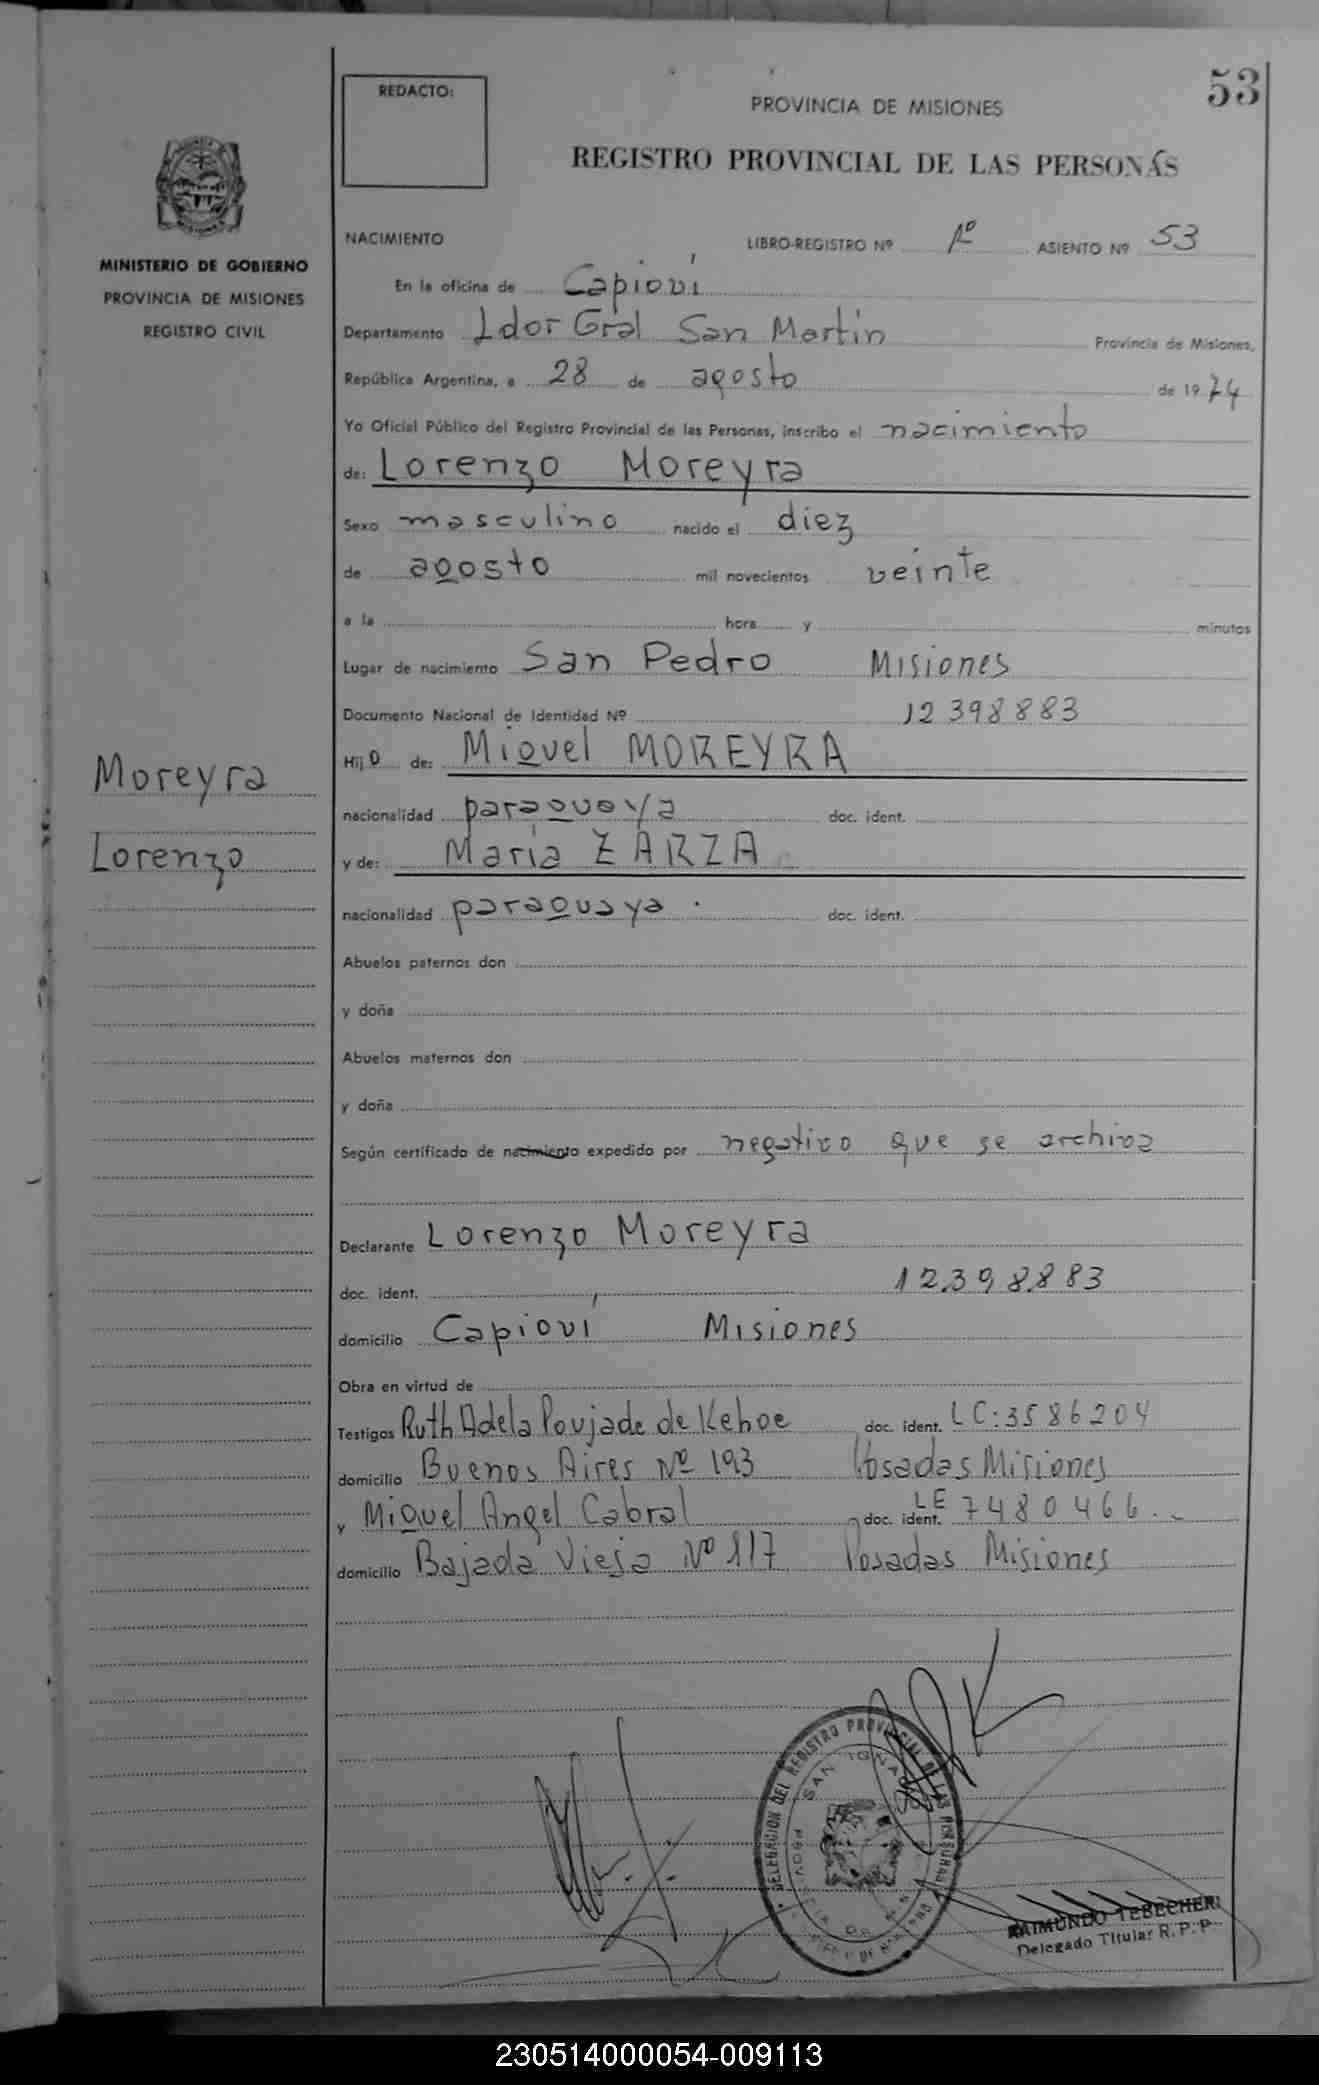 53
REDACTO:
PROVINCIA DE MISIONES
REGISTRO PROVINCIAL DE LAS PERSONAS
MINISTERIO DE GOBIERNO
PROVINCIA DE MISIONES
REGISTRO CIVIL
NACIMIENTO LIBRO-REGISTRO Nº 1º ASIENTO Nº 53
En la oficina de Capioví
Departamento Ldor Gral San Martin Provincia de Misiones,
República Argentina, a 28 de agosto de 1974
Yo Oficial Público del Registro Provincial de las Personas, inscribo el nacimiento
de: Lorenzo Moreyra
Sexo masculino nacido el diez
de agosto mil novecientos veinte
a la hora y minutos
Lugar de nacimiento San Pedro Misiones
Documento Nacional de Identidad Nº 12398883
Hijo de: Miguel MOREYRA
Moreyra
nacionalidad paraguaya doc. ident.
Lorenzo
y de: María ZARZA
nacionalidad paraguaya. doc. ident.
Abuelos paternos don
y doña
Abuelos maternos don
y doña
Según certificado de nacimiento expedido por negativo que se archiva
Declarante Lorenzo Moreyra
doc. ident. 12.398.883
domicilio Capioví Misiones
Obra en virtud de
Testigos Ruth Adela Poujade de Kehoe doc. ident. LC:3586204
domicilio Buenos Aires Nº 193 Posadas Misiones
y Miguel Angel Cabral doc. ident. LE 7480466.-
domicilio Bajada Vieja Nº 117 Posadas Misiones
DELEGACION DEL REGISTRO PROVINCIAL DE LAS PERSONAS
SAN IGNACIO
RAIMUNDO TEBECHERI
Delegado Titular R.P.P.
230514000054-009113